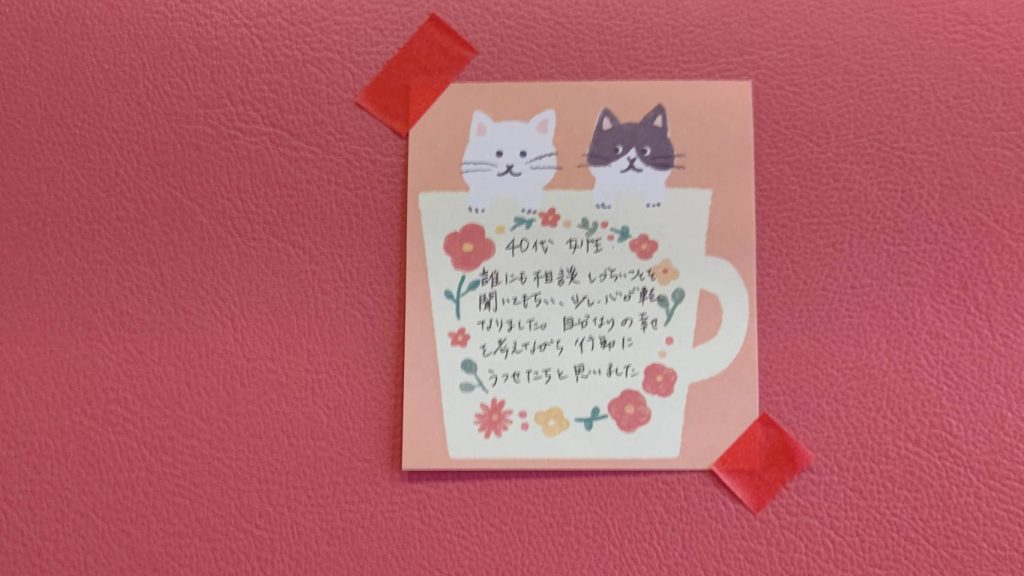 40代 女性
誰にも相談しづらいことを
聞いてもらい、少し心が軽く
なりました。自分なりの幸せ
を考えながら行動に
うつせたらと思いました